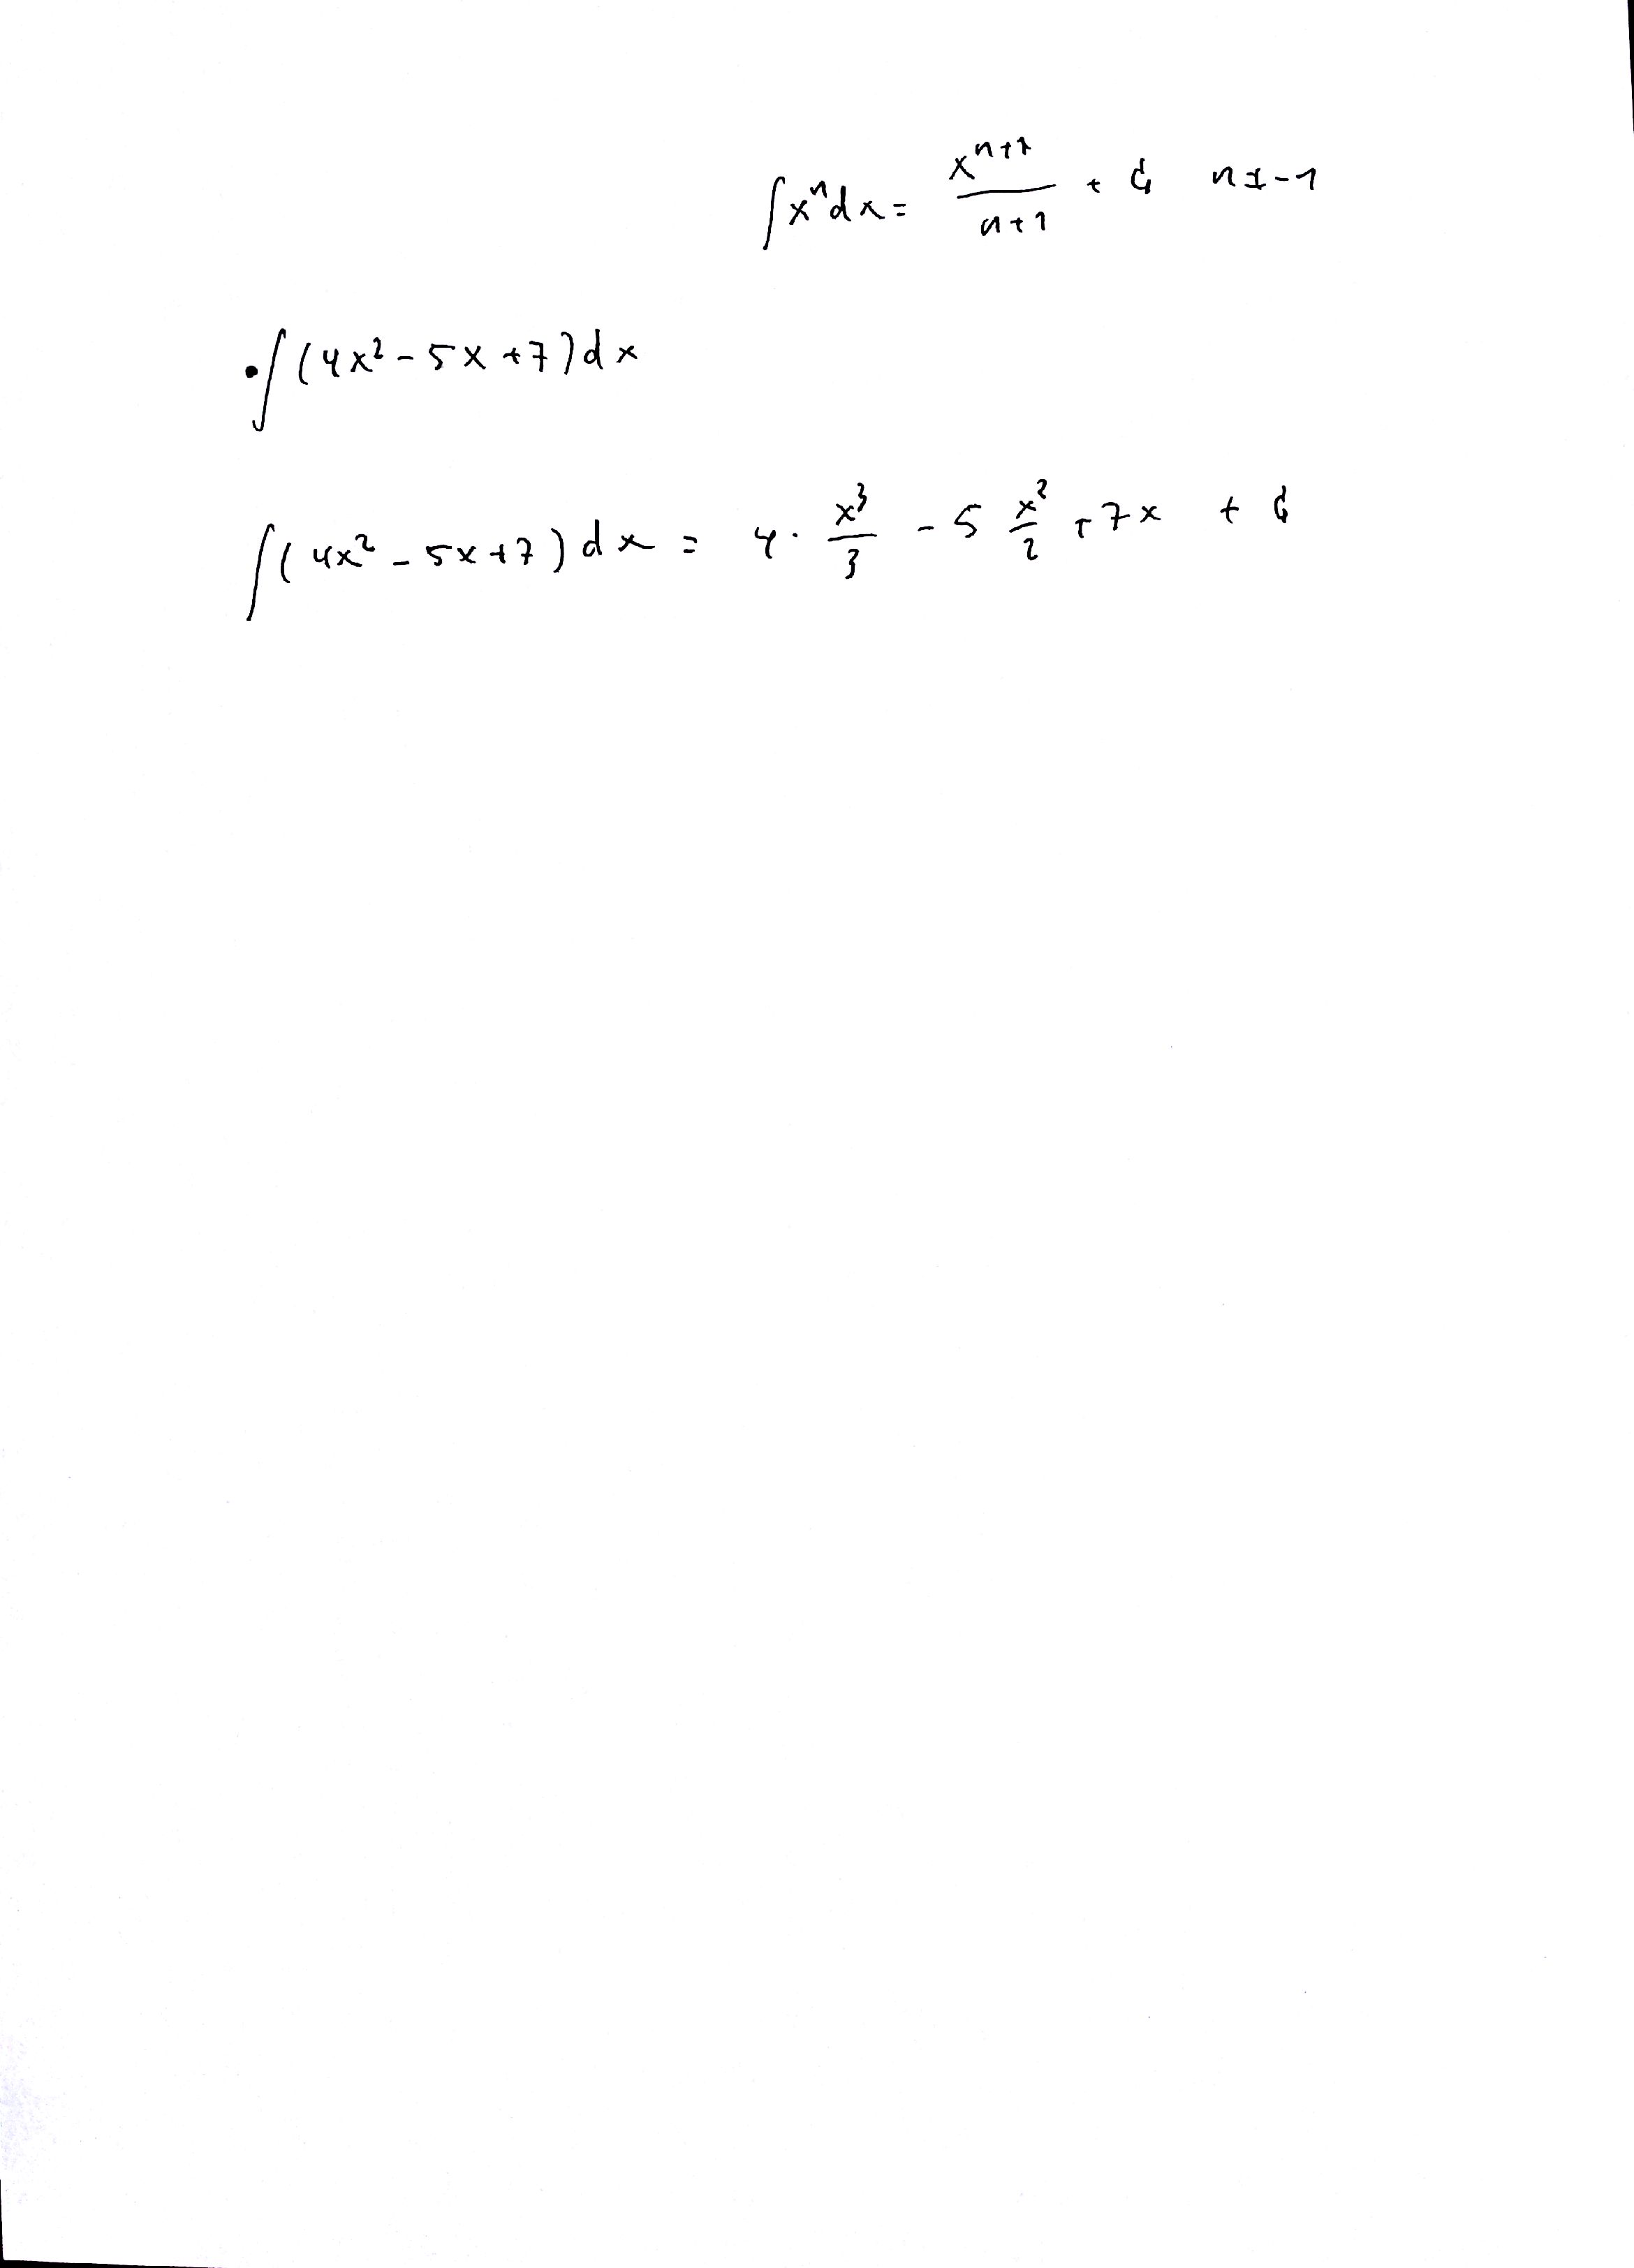 ∫xⁿdx = xⁿ⁺¹/n+1 + C n≠-1
• ∫(4x²-5x+7)dx
∫(4x²-5x+7)dx = 4·x³/3 - 5 x²/2 + 7x + C